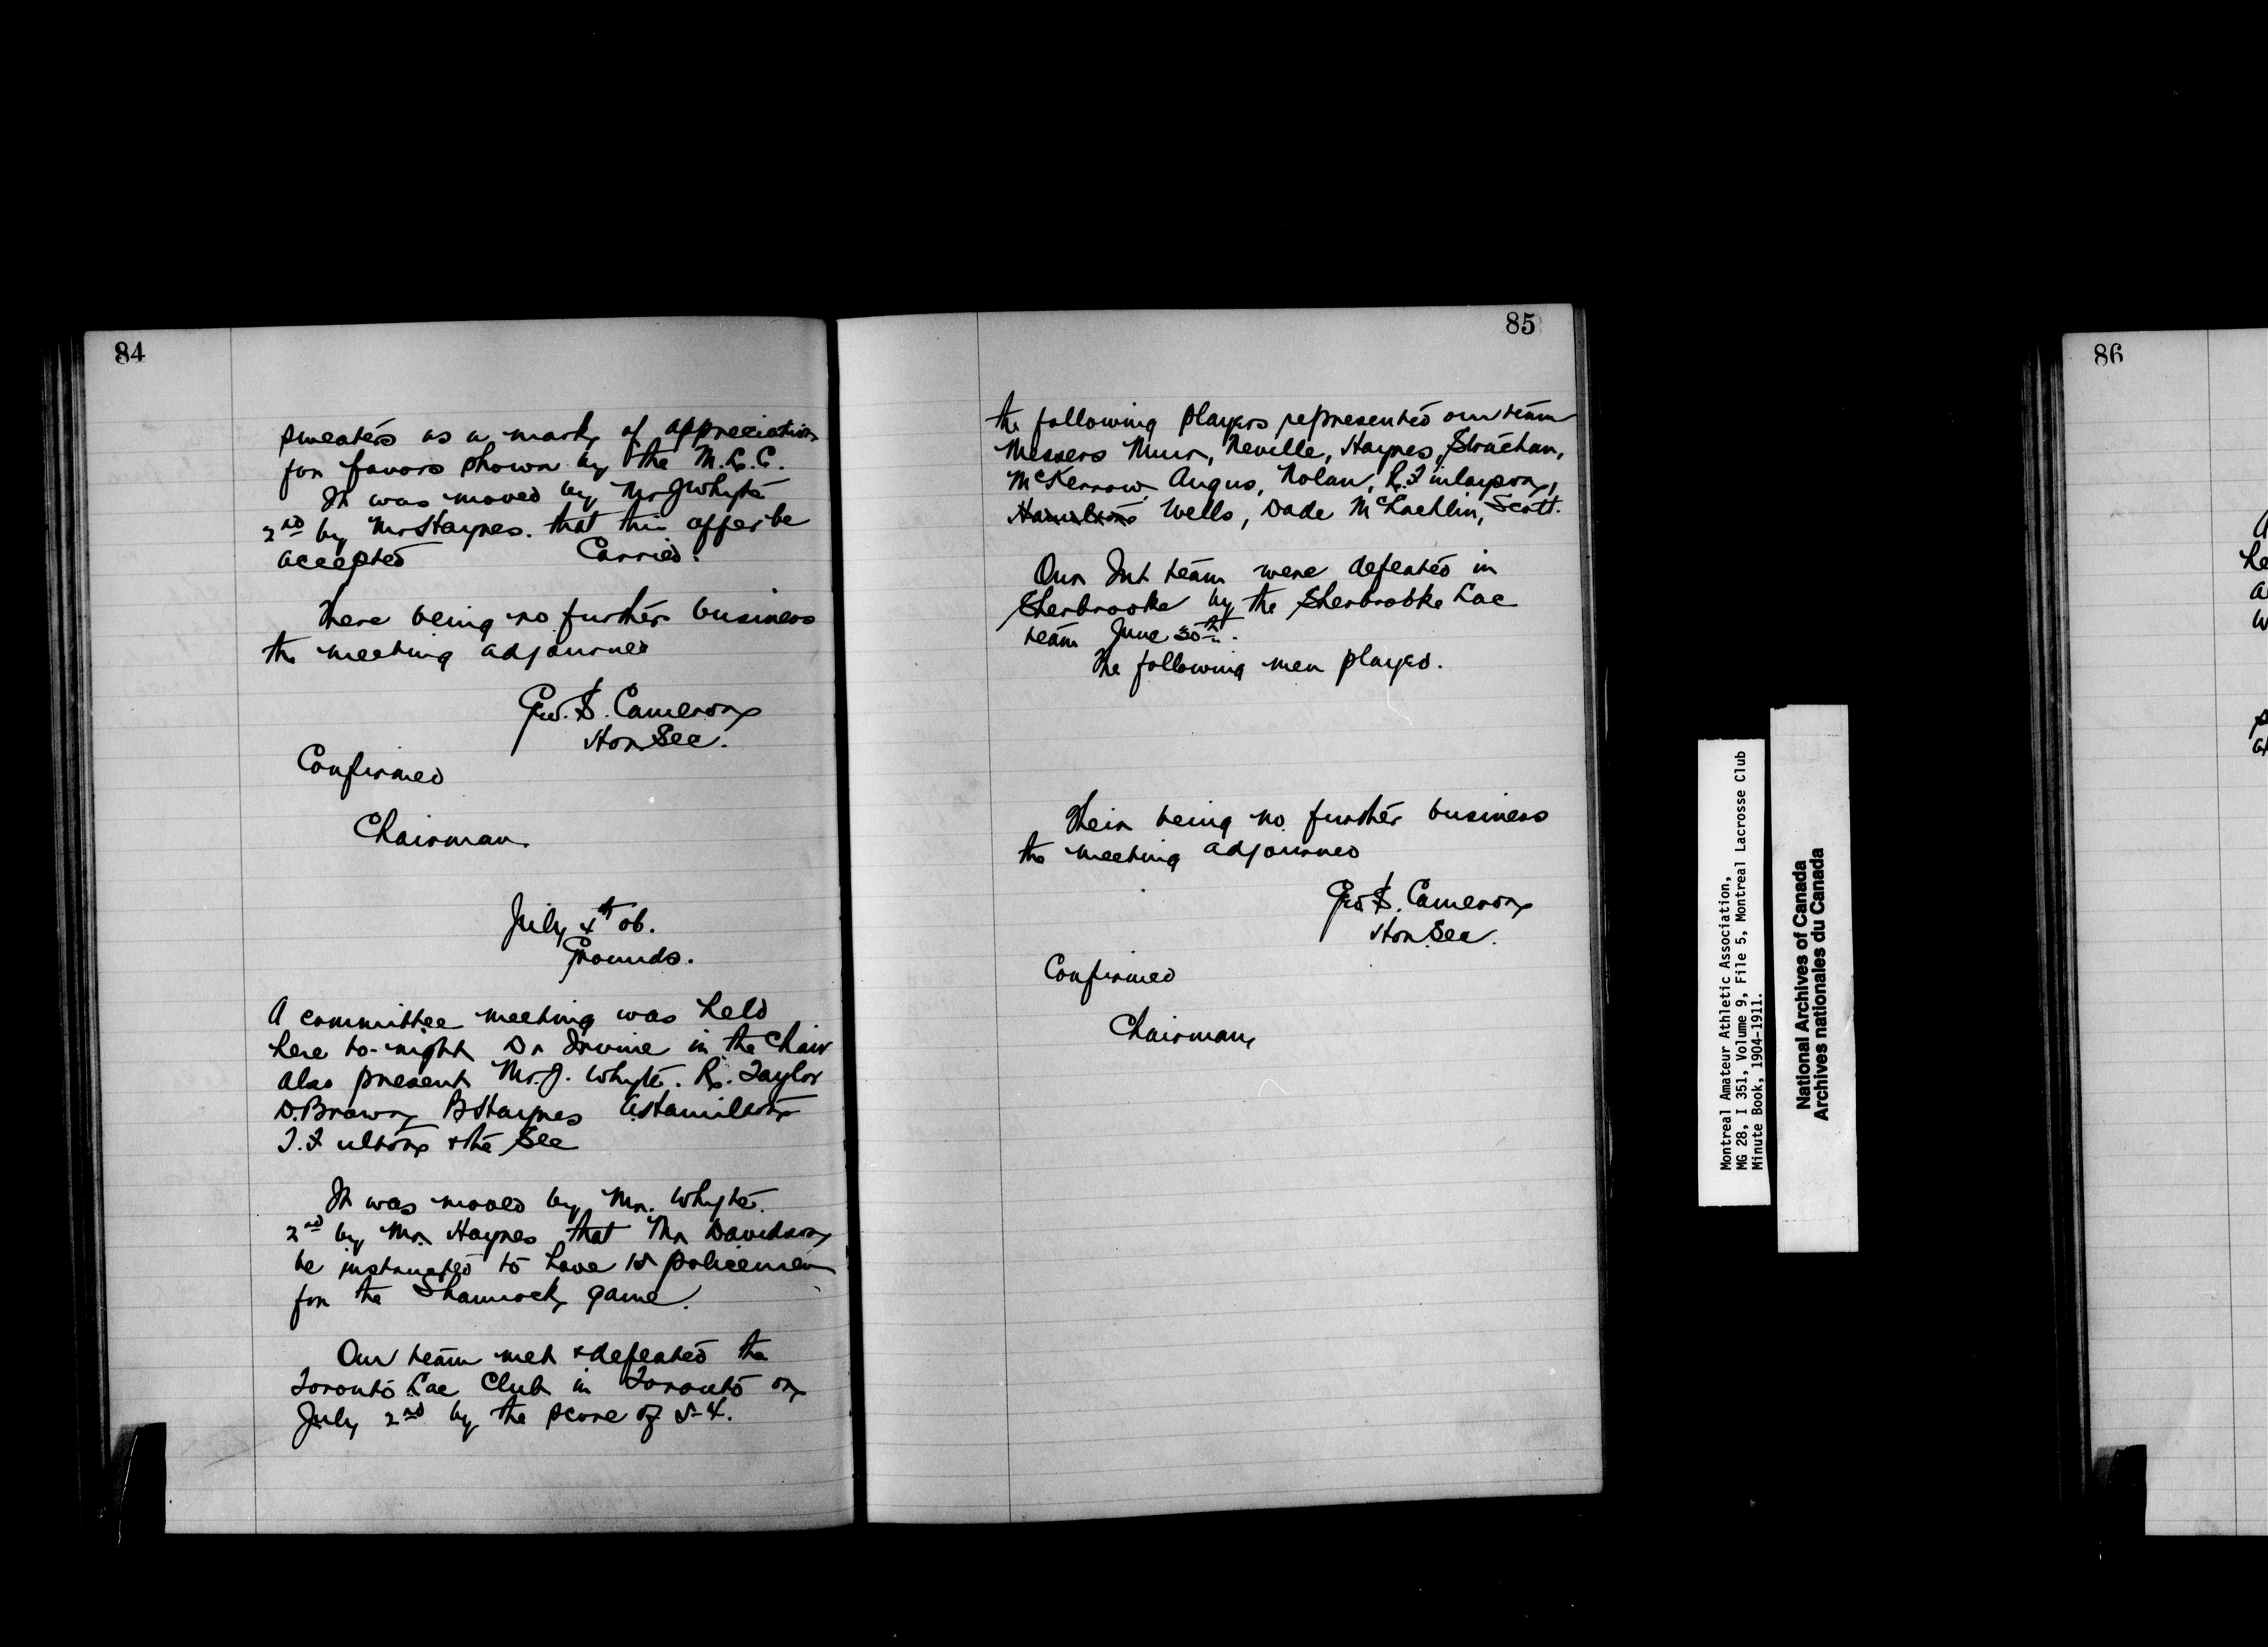 84
sweaters as a mark of appreciation
for favors shown by the M.L.C.
It was moved by Mr J Whyte
2nd by Mr Haynes. that this offer be
accepted Carried.
There being no further business
the meeting adjourned
Geo. S. Cameron
Hon Sec.
Confirmed
Chairman.
July 4th 06.
Grounds.
A committee meeting was held
here to-night Dr Irvine in the Chair
also present Mr. J. Whyte. R. Taylor
D. Brown B Haynes A Hamilton
T. Fulton & the Sec
It was moved by Mr. Whyte.
2nd by Mr. Haynes that Mr Davidson
be instructed to have 15 policemen
for the Shamrock game.
Our team met & defeated the
Toronto Lac Club in Toronto on
July 2nd by the score of 5-4.
85
the following players represented our team
Messers Muir, Neville, Haynes, Strachan,
McKerrow, Angus, Nolan, R. Finlayson,
Hamilton Wells, Dade McLachlin, Scott.
Our Int team were defeated in
Sherbrooke by the Sherbrooke Lac
team June 30th.
The following men played.
Their being no further business
the meeting adjourned
Geo S. Cameron
Hon. Sec.
Confirmed
Chairman
Montreal Amateur Athletic Association,
MG 28, I 351, Volume 9, File 5, Montreal Lacrosse Club
Minute Book, 1904-1911.
National Archives of Canada
Archives nationales du Canada
86